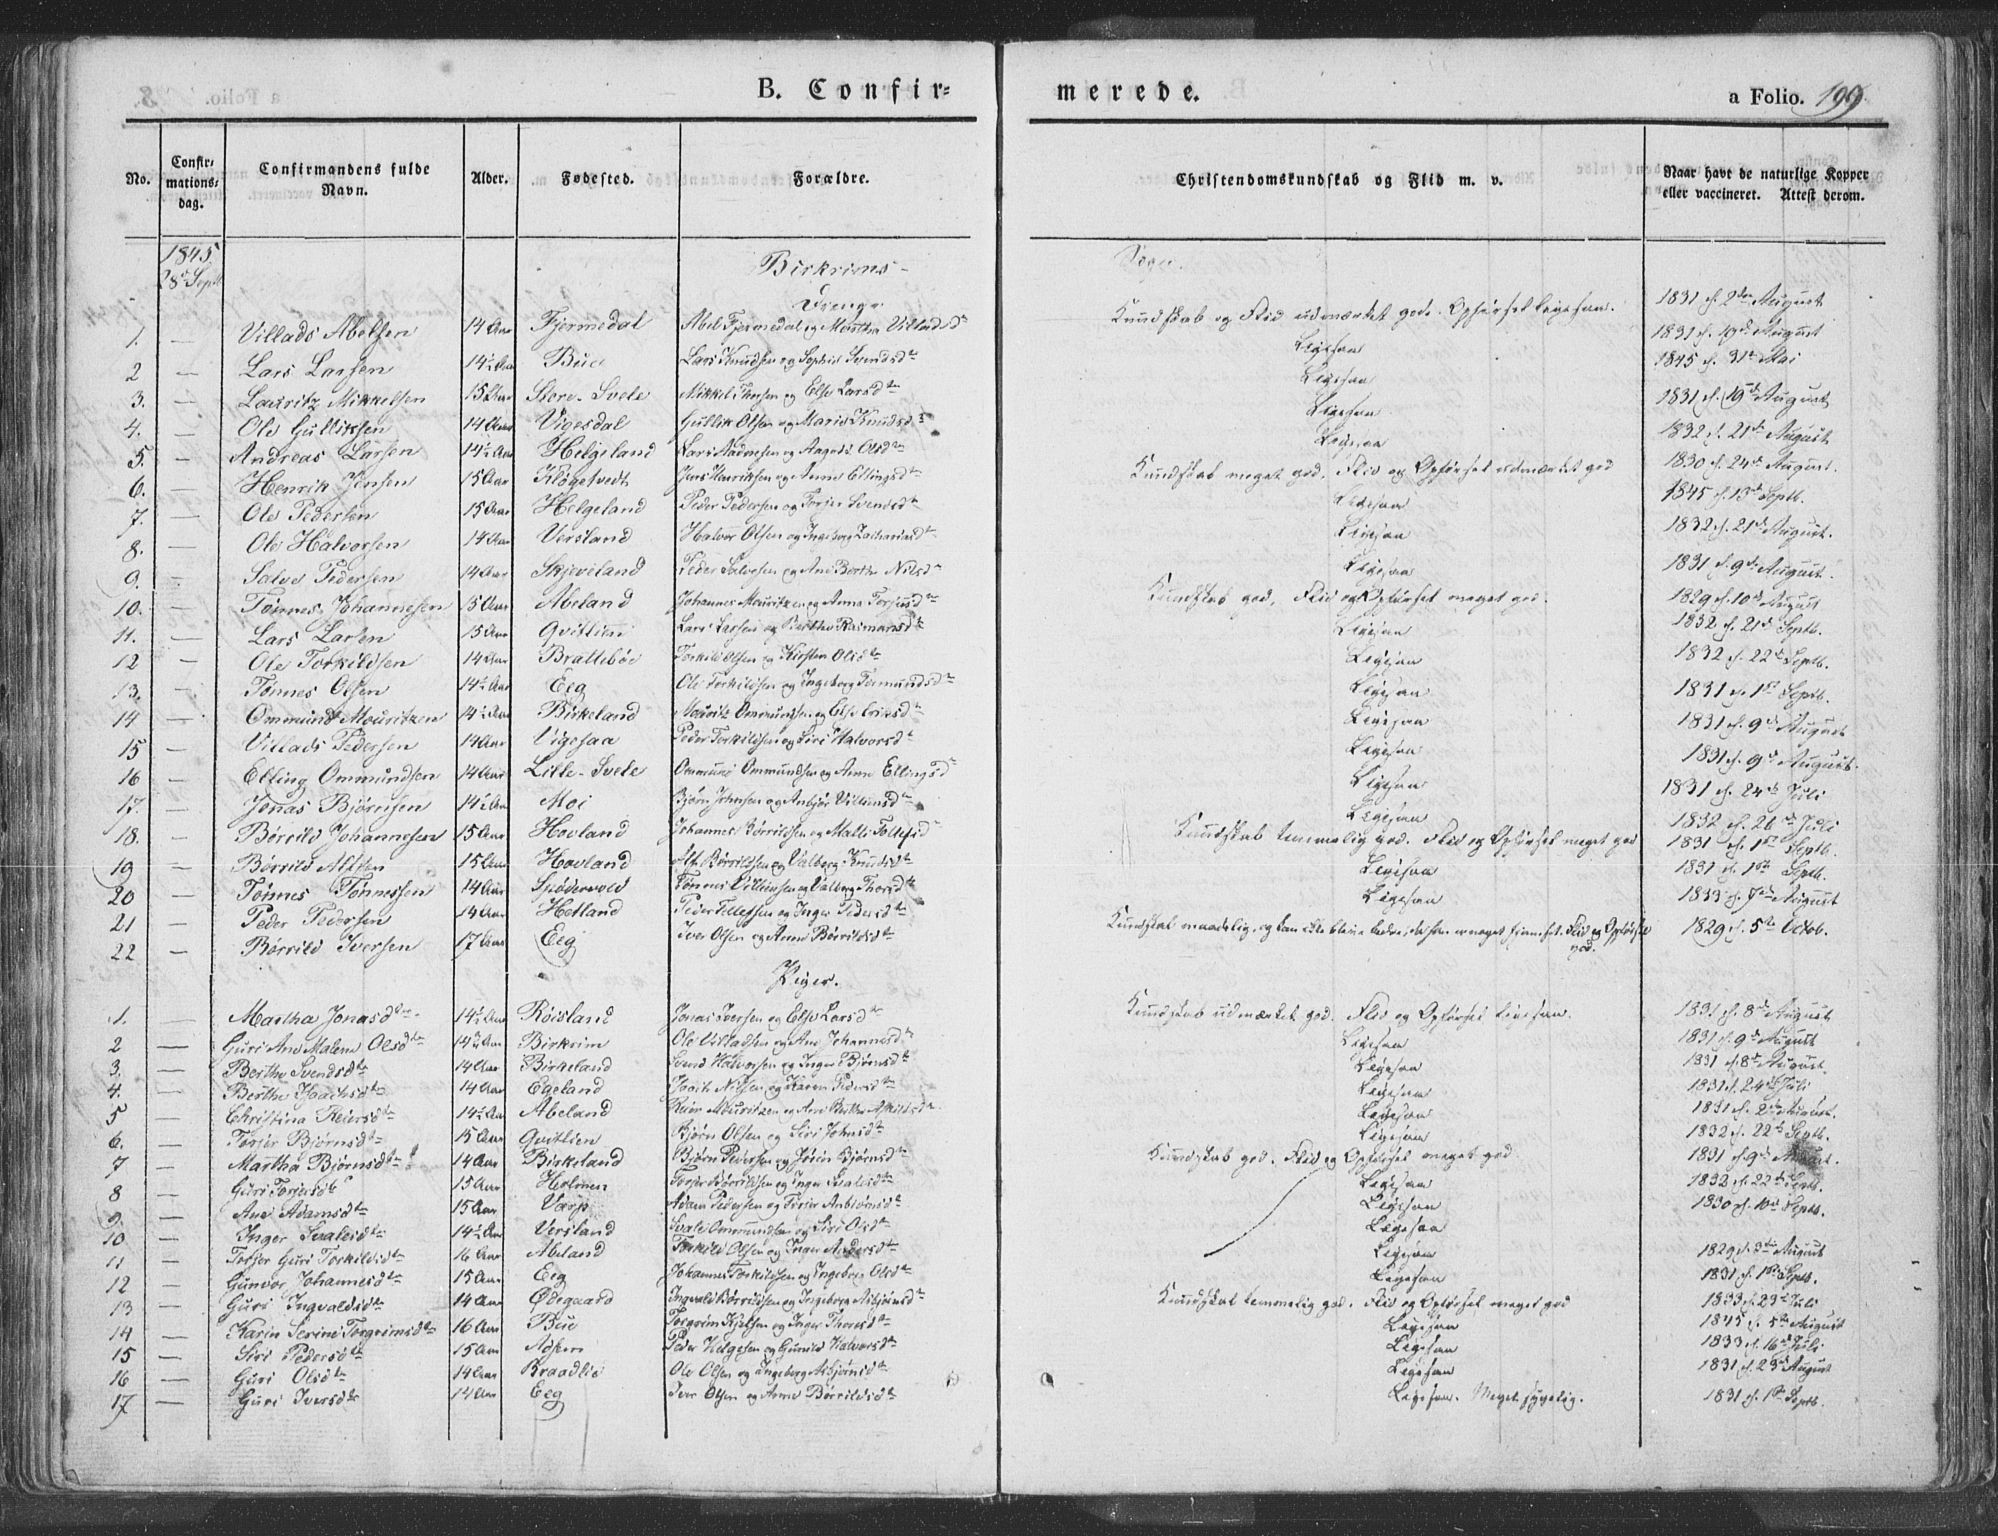 B. Confir-
merede.
a Folio. 199.
No. Confir-mations-dag. Confirmandens fulde Navn. Alder. Fødested. Forældre. Christendomskundskab og Flid m. v. Naar havt de naturlige Kopper eller vaccineret. Attest derom.
1845
28de Septb Birkrims- Sogn.
Drenge
1. — Villads Abelsen 14 Aar Fjermedal Abel Fjermedal og Martha Villadsdr Kundskab og Flid udmærket gode. Opførsel ligesaa. 1831 d. 2den August
2 — Lars Larsen 14½ Aar Bue Lars Knudsen og Sophie Svendsdr Ligesaa 1831 d. 19de August
3. — Lauritz Mikkelsen 15 Aar Store-Svele Mikkel Thorsen og Else Larsdtr Ligesaa 1845 d. 31te Mai
4. — Ole Gulliksen 14 Aar Vigesdal Gullik Olsen og Marie Knudsdr Ligesaa 1831 d. 19de August
5. — Andreas Larsen 14½ Aar Helgeland Lars Aadnesen og Aagodt Olsdtr Ligesaa 1832 d. 21de August
6. — Henrik Jensen 15 Aar Kløgetvedt Jens Henriksen og Anne Ellingsdr Kundskab meget god. Flid og Opførsel udmærket god 1830 d. 24de August.
7. — Ole Pedersen 15 Aar Helgeland Peder Pedersen og Torjer Svendsdtr Ligesaa 1845 d. 13de Septb.
8. — Ole Halvorsen 14 Aar Versland Halvor Olsen og Ingeborg Zachariasdtr Ligesaa 1832 d. 21de August.
9. — Salve Pedersen 14 Aar Skjeveland Peder Salvesen og Ane Berthe Nilsdr Ligesaa 1831 d. 9de August.
10. — Tønnes Johannesen 15 Aar Abeland Johannes Mouritzen og Anna Torjusdtr Kundskab god, Flid og Opførsel meget god. 1829 d. 10de August
11. — Lars Larsen 15 Aar Qvitlien Lars Larsen og Berthe Rasmusdtr Ligesaa 1832 d. 21de Septb.
12 — Ole Torkildsen 14 Aar Brattebøe Torkild Olsen og Kirsten Olsdtr Ligesaa 1832 d. 22de Septb.
13. — Tønnes Olsen 14½ Aar Eeg Ole Torkildsen og Ingeborg Tormundsdtr Ligesaa 1831 d. 1ste Septb.
14 — Ommund Mouritzen 14½ Aar Birkeland Mouritz Ommundsen og Else Eriksdtr Ligesaa 1831 d. 9de August
15 — Villads Pedersen 14 Aar Vigesaa Peder Torkildsen og Siri Halvorsdtr Ligesaa 1831 d. 9de August.
16 — Elling Ommundsen 14 Aar Lille-Svele Ommund Ommundsen og Anne Ellingsdr Ligesaa 1831 d. 24de Juli
17. — Jonas Bjørnsen 14½ Aar Moi Bjørn Johnsen og Anbjør Villumsdtr Ligesaa 1832 d. 26de Juli
18. — Børrild Johannesen 15 Aar Hovland Johannes Børrildsen og Malli Tollefsdr Kundskab temmelig god. Flid og Opførsel meget god 1831 d. 1ste Septb.
19 — Børrild Alfsen 15 Aar Hovland Alf Børrildsen og Valborg Knudsdtr Ligesaa 1831 d. 1ste Septb.
20 — Tønnes Tønnessen 14 Aar Spødervold Tønnes Villumsen og Valborg Thorsdtr Ligesaa 1833 d. 7de August
21 — Peder Pedersen 14 Aar Hetland Peder Tollefsen og Inger Pedersdtr
22 — Børrild Iversen 17 Aar Eeg Iver Olsen og Anne Børrildsdtr Kundskab maadelig, og kan ikke blive bedre, da han er meget Flid og Opførsel god. 1829 d. 5te Octob.
Piger.
1. — Martha Jonasdtr 14½ Aar Røisland Jonas Iversen og Else Larsdtr Kundskab udmærket god. Flid og Opførsel ligesaa. 1831 d. 8de August
2 — Guri Ane Malene Olsdtr 14½ Aar Birkrim Ole Villadsen og Ane Johannesdtr Ligesaa 1831 d. 9de August
3. — Berthe Svendsdtr 14 Aar Birkeland Svend Halvorsen og Inger Bjørnsdtr Ligesaa 1831 d. 8de August.
4. — Berthe Joachsdtr 14 Aar Egeland Nilsen og Karen Pedersdtr Ligesaa 1831 d. 24de Juli
5 — Christina Reiersdtr 14½ Aar Abeland Reier Mouritzen og Ane Berthe Askildsdtr Ligesaa 1831 d. 2de August.
6. — Torjer Bjørnsdtr 15 Aar Qvitlien Bjørn Olsen og Siri Johnsdtr Ligesaa 1832 d. 22de Septb.
7 — Martha Bjørnsdtr 14 Aar Birkeland Bjørn Pedersen og Søren Bjørnsdtr Kundskab god. Flid og Opførsel meget god 1831 d. 9de August.
8 — Guri Torjersdtr 15 Aar Holmen Torjer Børrildsen og Inger Svalesdtr Ligesaa 1832 d. 22de Septb.
9. — Ane Adamsdtr 15 Aar Varp Adam Pedersen og Torjer Anbjørnsdtr Ligesaa 1830 d. 10de Septb.
10 — Inger Svalesdtr 14½ Aar Versland Svale Ommundsen og Siri Olsdtr Ligesaa
11 — Torjer Guri Torkildsdtr 16 Aar Abeland Torkild Olsen og Inger Andersdtr Ligesaa 1829 d. 3die August
12 — Gunvor Johannesdtr 15 Aar Eeg Johannes Torkildsen og Ingeborg Olsdtr Ligesaa 1831 d. 1ste Septb.
13 — Guri Ingvaldsdtr 14 Aar Ødegaard Ingvald Børrildsen og Ingeborg Asbjørnsdtr Kundskab temmelig god. Flid og Opførsel meget god 1833 d. 23de Juli
14 — Karin Serine Torgrimsdtr 16 Aar Bue Torgrim Kjelsen og Inger Thorsdtr Ligesaa 1845 d. 5te August
15 — Siri Pedersdtr 15 Aar Peder Helgesen og Gunild Halvorsdtr Ligesaa 1833 d. 16de Juli
16 — Guri Olsdtr 14 Aar Braadlie Ole Olsen og Ingeborg Asbjørnsdtr Ligesaa 1831 d. 23de August
17 — Guri Iversdtr 14 Aar Eeg Iver Olsen og Anne Børrildsdtr Ligesaa. Meget sygelig. 1831 d. 1ste Septb.